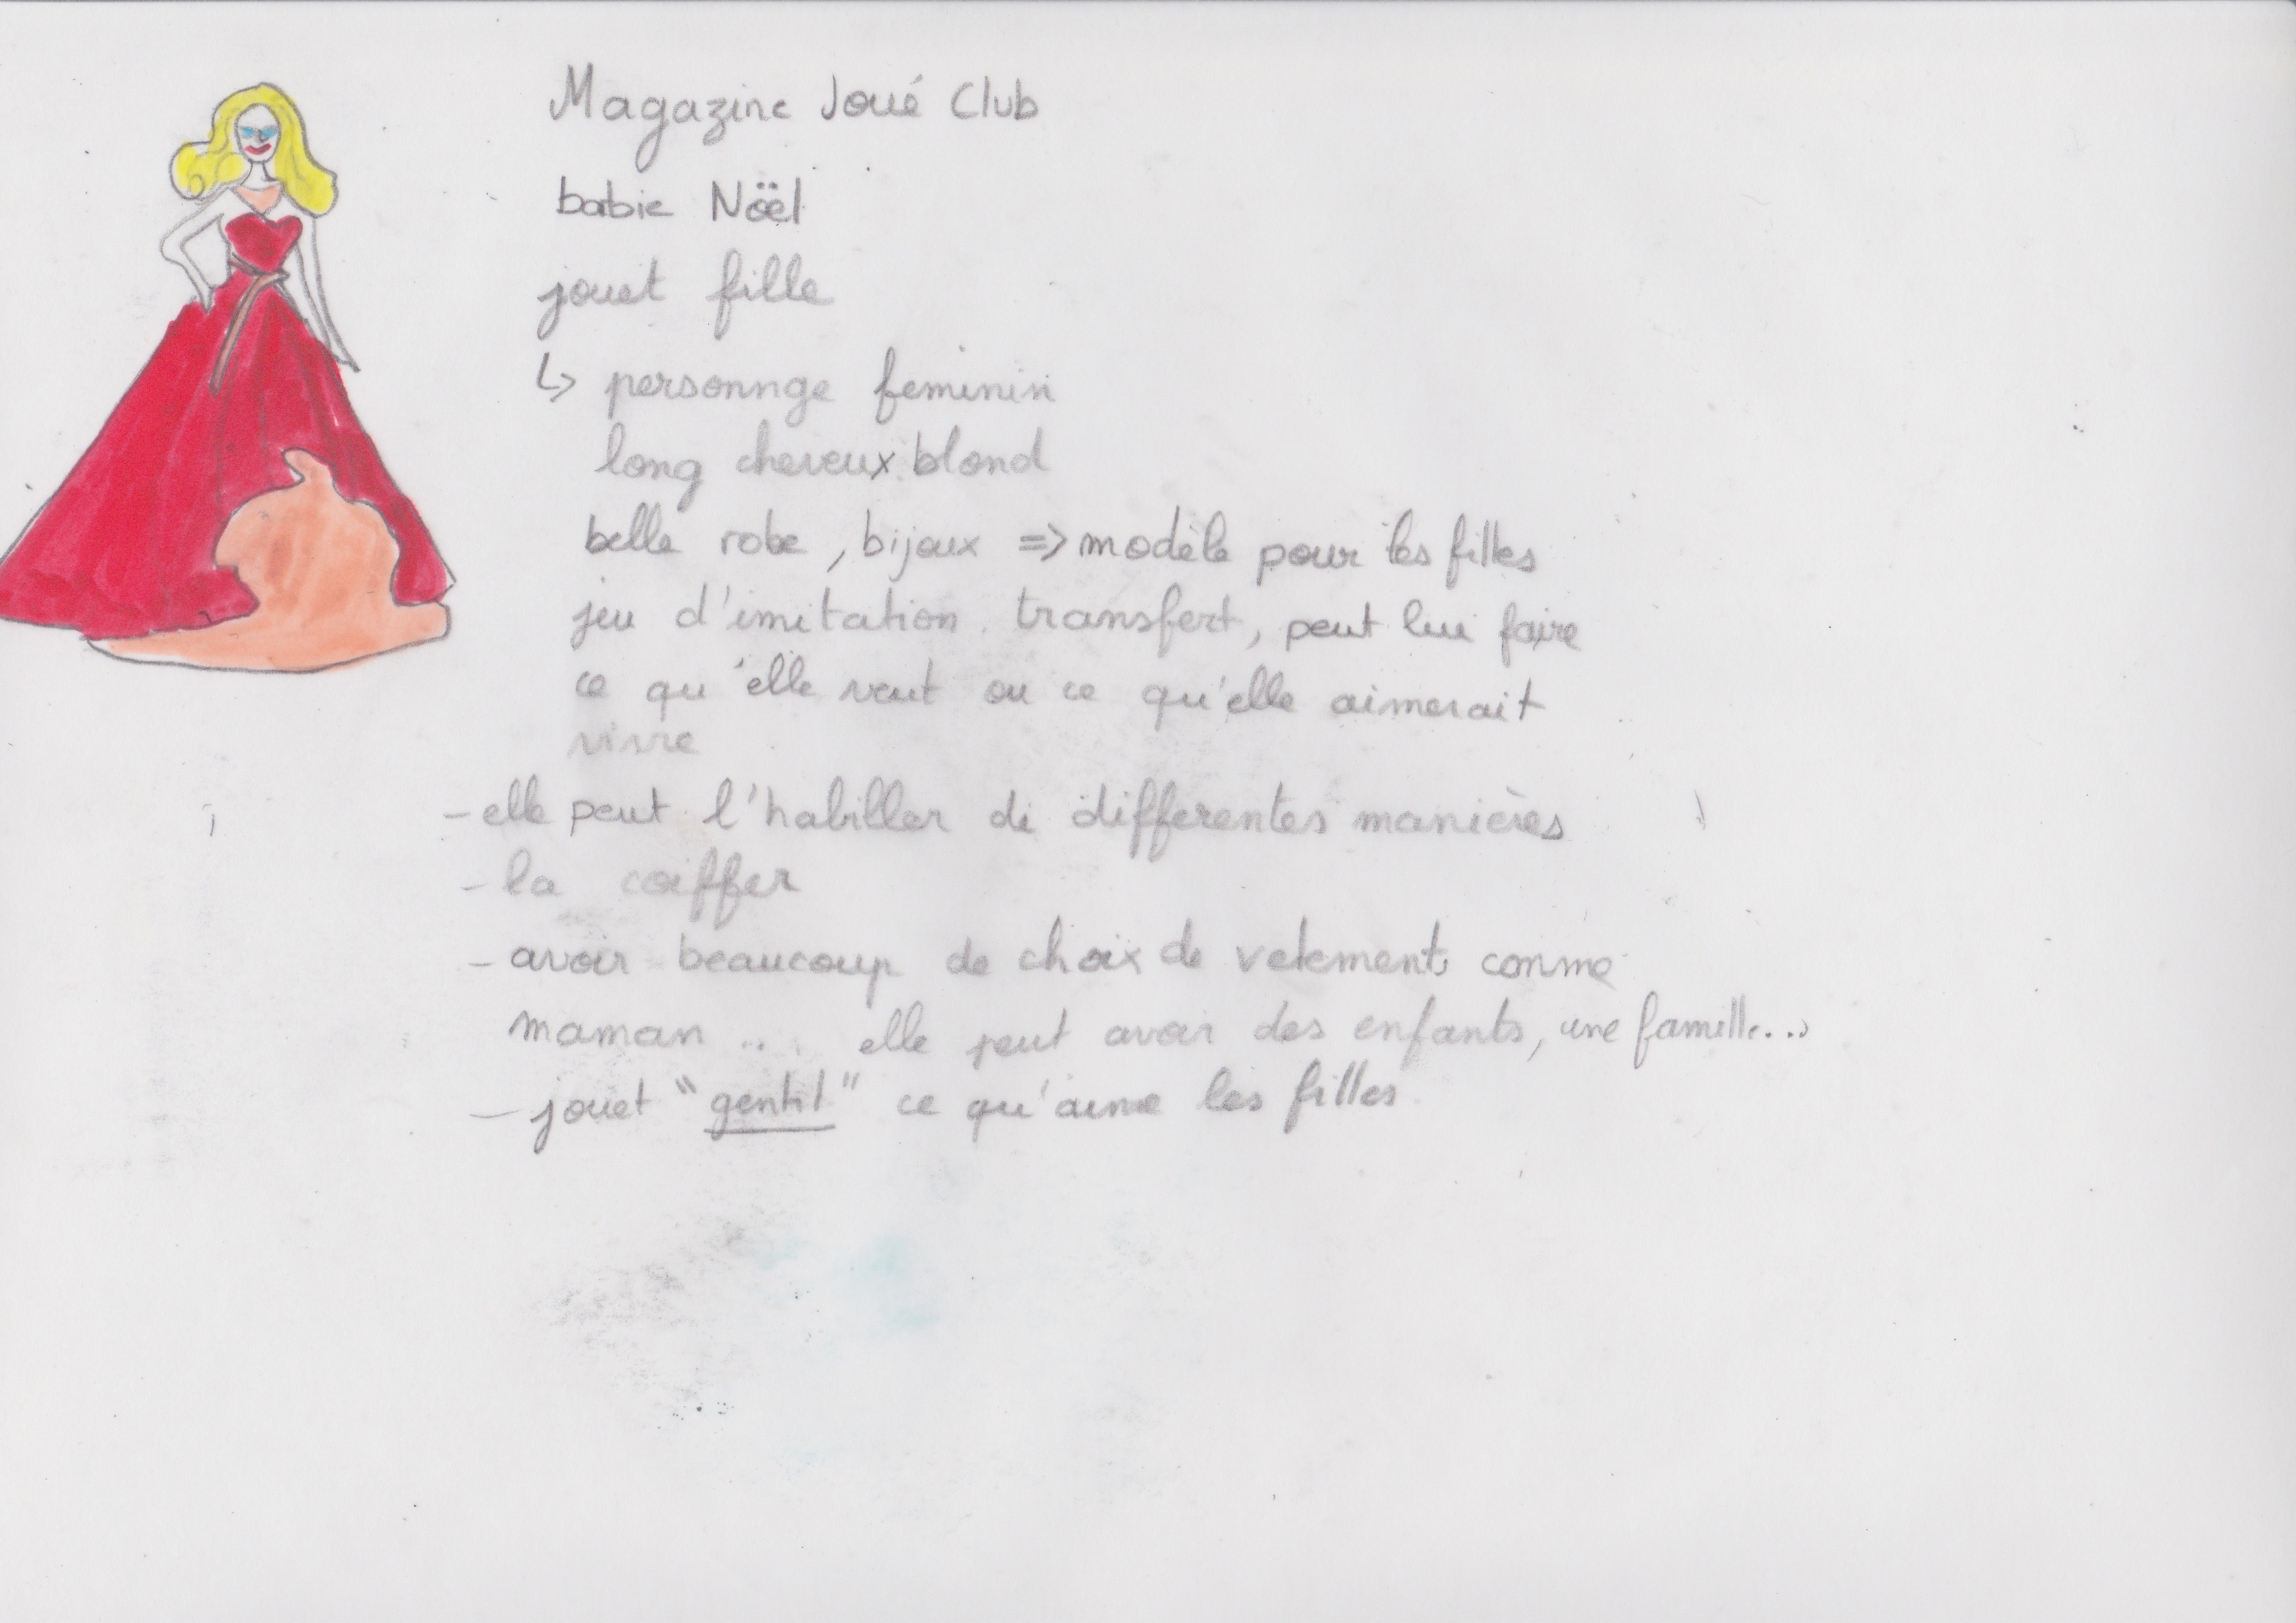 Magazine Joué Club
barbie Nöël
jouet fille
↳ personnge feminin
long cheveux blond
belle robe, bijoux => modèle pour les filles
jeu d'imitation. transfert, peut lui faire
ce qu'elle veut ou ce qu'elle aimerait
vivre
- elle peut l'habiller de differentes manières
- la coiffer
- avoir beaucoup de choix de vetements comme
maman ... elle peut avoir des enfants, une famille...
- jouet "gentil" ce qu'aime les filles